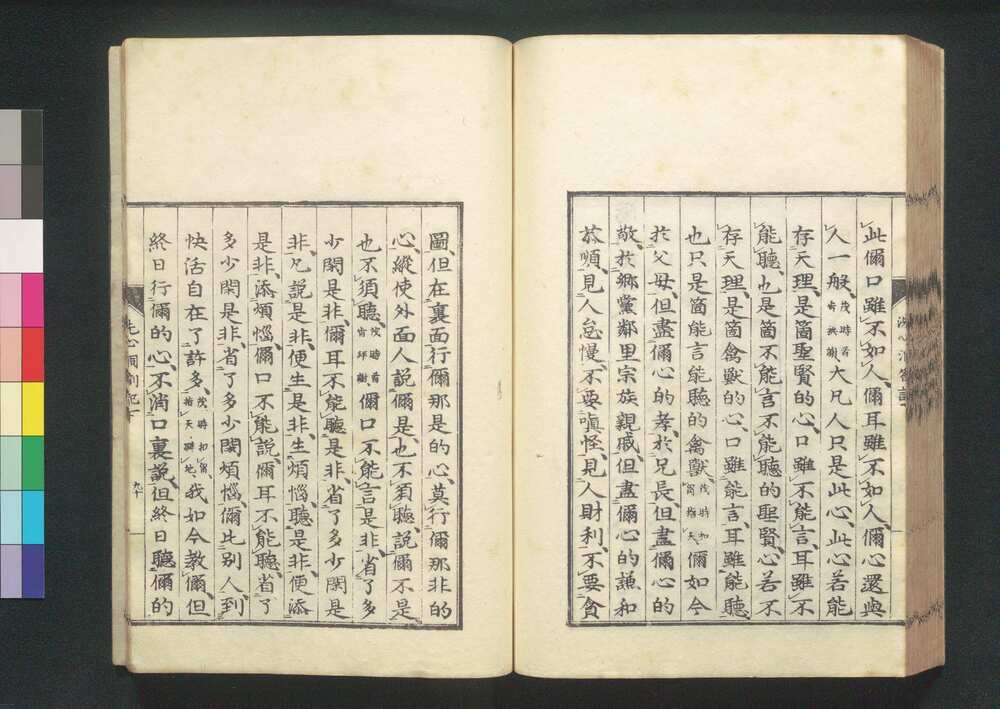 此儞口雖不如人、儞耳雖不如人、儞心還與
人一般、茂時首肯拱謝大凡人只是此心、此心若能
存天理、是箇聖賢的心、口雖不能言、耳雖不
能聽、也是箇不能言不能聽的聖賢、心若不
存天理、是箇禽獸的心、口雖能言、耳雖能聽、
也只是箇能言能聽的禽獸、茂時扣胸指天儞如今
於父母、但盡儞心的孝、於兄長、但盡儞心的
敬、於鄉黨鄰里宗族親戚、但盡儞心的謙和
恭順、見人怠慢、不要嗔怪、見人財利、不要貪
圖、但在裏面行儞那是的心、莫行儞那非的
心、縱使外面人說儞是、也不須聽、說儞不是、
也不須聽、茂時首肯拜謝儞口不能言是非、省了多
少閑是非、儞耳不能聽是非、省了多少閑是
非、凡說是非、便生是非、生煩惱、聽是非、便添
是非、添煩惱、儞口不能說、儞耳不能聽、省了
多少閑是非、省了多少閑煩惱、儞比別人、到
快活自在了許多、茂時扣胸指天躃地我如今教儞、但
終日行儞的心、不消口裏說、但終日聽儞的
九十